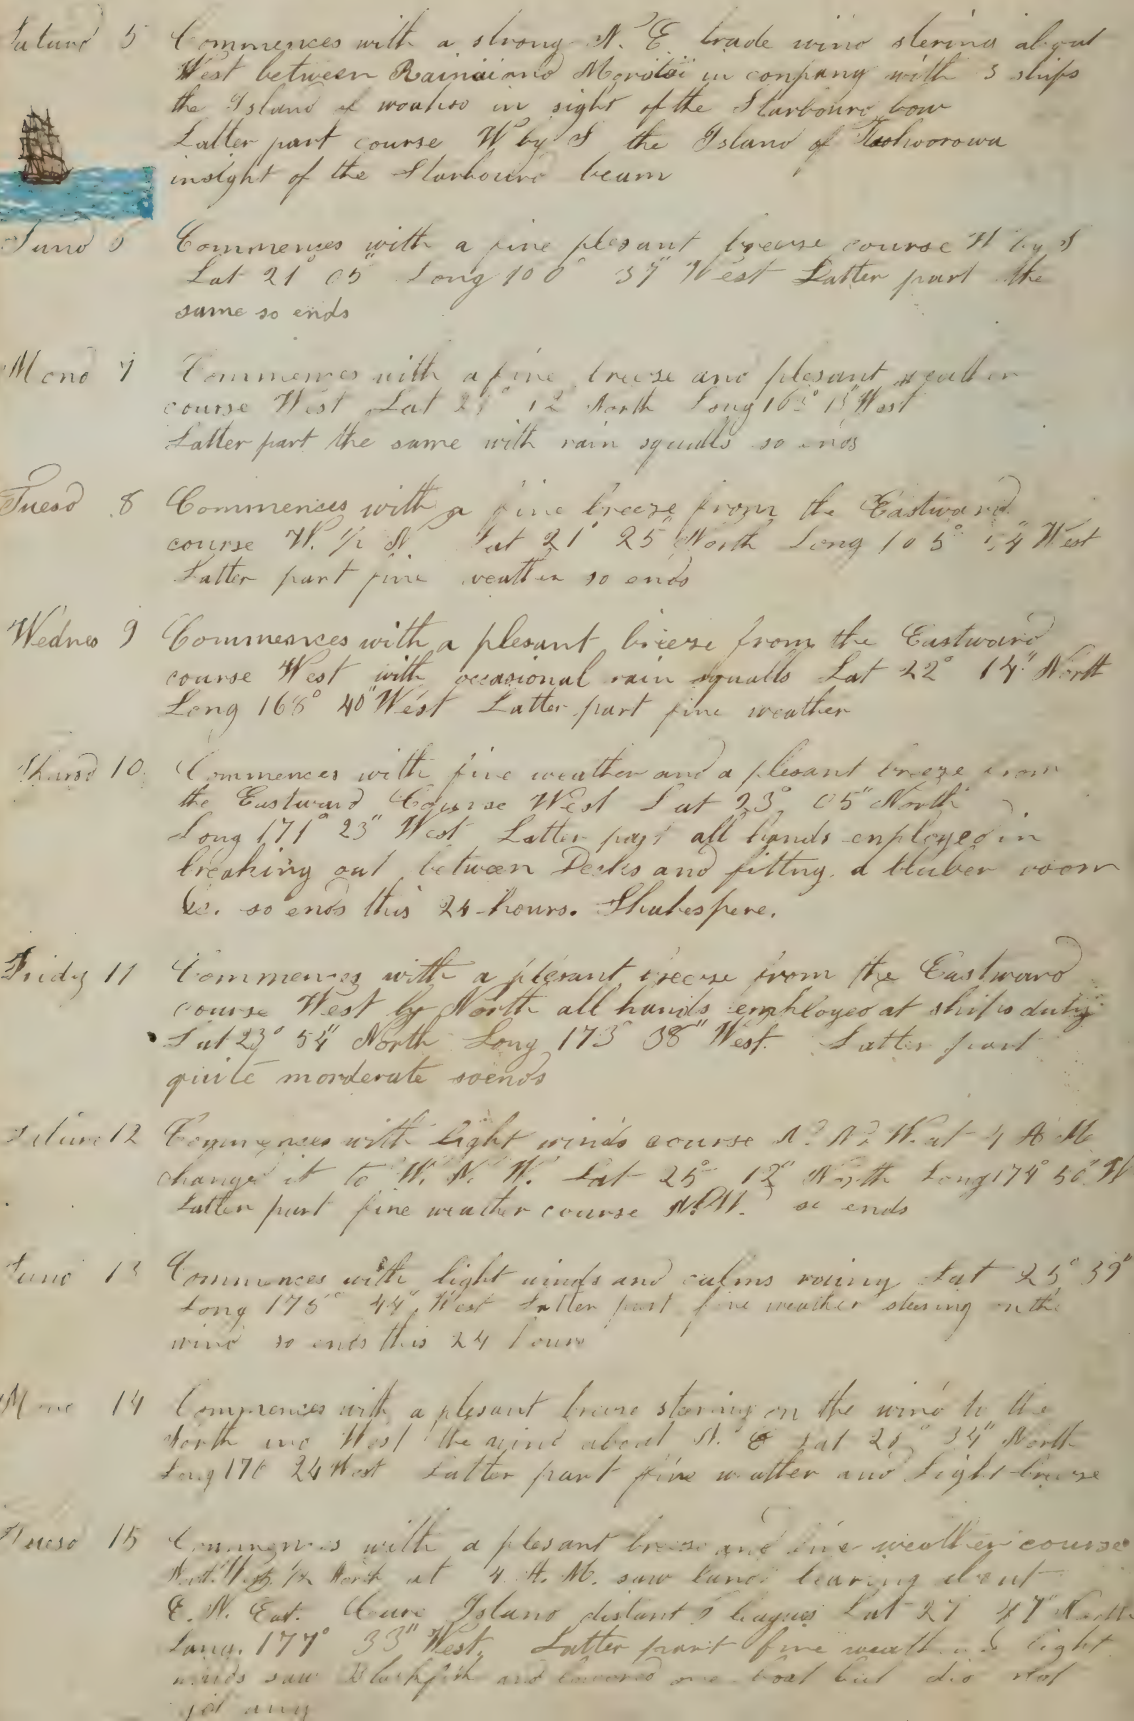 Saturd 5 Commences with a strong N. E. trade wind stering about
West between Rainai and Morotoi in conpany with 3 ships
the Island of woahoo in sight of the Starbourd bow
Latter part course W by S the Island of
insight of the Starbourd beam
Sund 6 Commences with a fine plesant breeze course W by S
Lat 21° 05" Long West Latter part the
same so ends
Mond 7 Commences with a fine breeze and plesant weather
course West Lat 12 North Long West
Latter part the same with rain squalls so ends
Tuesd 8 Commences with a fine breeze from the Eastward
course W. 1/2 N. Lat 21° 25" North Long West
Latter part fine weather so ends
Wednes 9 Commences with a plesant breeze from the Eastward
course West with occasional rain squalls Lat 22° 14" North
Long 168° 40" West Latter part fine weather
Thursd 10 Commences with fine weather and a plesant breeze from
the Eastward Course West Lat 23° 05" North
Long 171° 23" West Latter part all hands enployed in
breaking out between Decks and fitting a bluber room
&c. so ends this 24 hours. Shakespere.
Friday 11 Commences with a plesant breeze from the Eastward
course West by North all hands employed at ships duty
Lat 23° 54" North Long 173° 38" West. Latter part
quite morderate so ends
Saturd 12 Commences with light winds course N. N. W. at 4 A M
change it to W. N. W. Lat 25° 12" North Long 174° 50" W
Latter part fine weather course so ends
Sund 13 Commences with light winds and calms Lat 25° 39"
Long 175° 44" West Latter part fine weather stering on the
wind so ends this 24 hours
Mond 14 Commences with a plesant breeze stering on the wind to the
North and West the wind about N. E Lat 34" North
Long 176 24 West Latter part fine weather and Light breeze
Tuesd 15 Commences with a plesant breeze and fine weather course
1/2 North at 4 A. M. saw land bearing about
E. N. East. Cure Island distant leagues Lat 27 47" North
Long. 177° 33" West. Latter part fine weather and light
winds saw Blackfish and lowered one boat but did not
get any